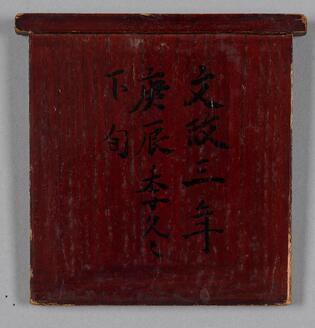 文政三年
庚辰季冬
下旬